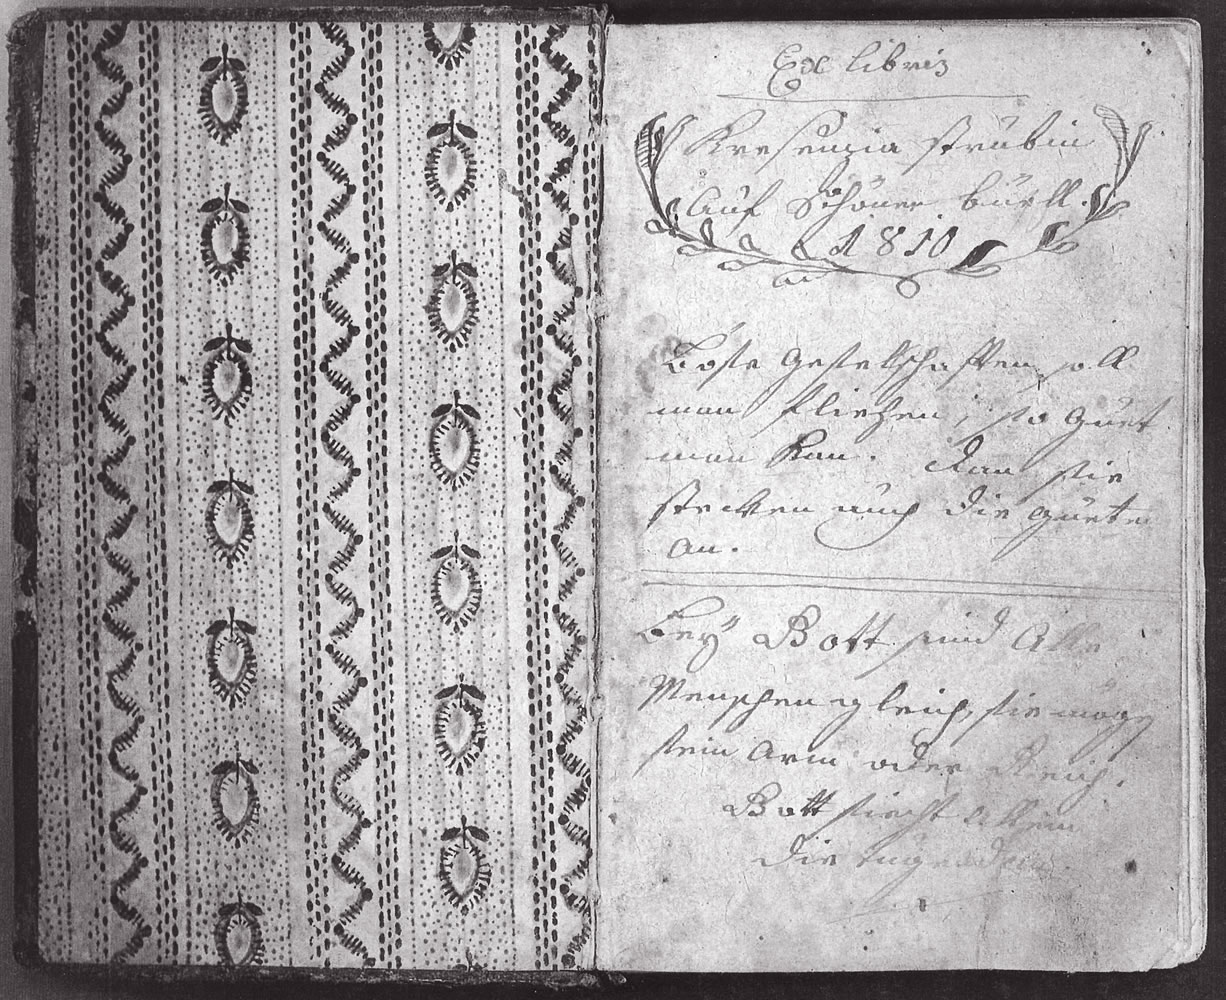 Ex libris
Kresenzia Strübin
Auf Schöner büehl.
1810
Böse Geselschafften soll
man fliehen, so guet
man kan. dan sie
stecken auch die gueten
an.
Bey Gott sind Alle
Menschen gleich, sie mögen
sein Arm oder Reich.
Gott sieht Allein
die tugenden